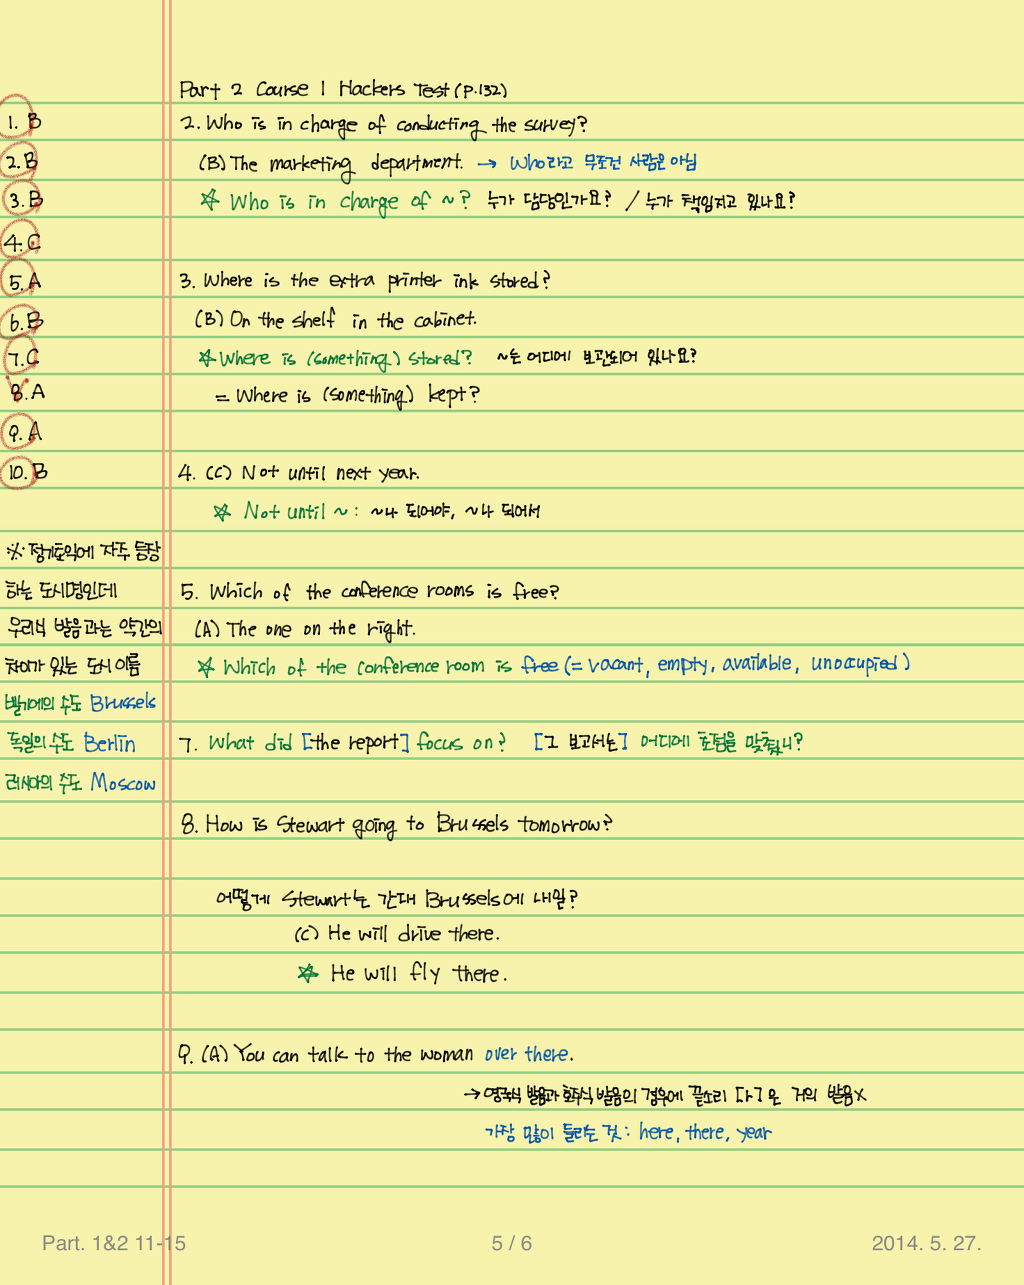 Part 2 Course 1 Hackers Test (P.132)
1. B
2. B
3. B
4. C
5. A
6. B
7. C
8. A
9. A
10. B
※ 정기토익에 자주 등장
하는 도시명인데
우리식 발음과는 약간의
차이가 있는 도시 이름
벨기에의 수도 Brussels
독일의 수도 Berlin
러시아의 수도 Moscow
2. Who is in charge of conducting the survey?
(B) The marketing department. → Who라고 무조건 사람은 아님
☆ Who is in charge of ~? 누가 담당인가요? / 누가 책임지고 있나요?
3. Where is the extra printer ink stored?
(B) On the shelf in the cabinet.
☆ Where is (something) stored? ~는 어디에 보관되어 있나요?
= Where is (something) kept?
4. (C) Not until next year.
☆ Not until ~ : ~나 되어야, ~나 되어서
5. Which of the conference rooms is free?
(A) The one on the right.
☆ Which of the conference room is free (= vacant, empty, available, unoccupied)
7. What did [the report] focus on? [그 보고서는] 어디에 초점을 맞췄니?
8. How is Stewart going to Brussels tomorrow?
어떻게 Stewart는 간대 Brussels에 내일?
(C) He will drive there.
☆ He will fly there.
9. (A) You can talk to the woman over there.
→ 영국식 발음과 호주식 발음의 경우에 끝소리 [r]은 거의 발음X
가장 많이 들리는 것 : here, there, year
Part. 1&2 11-15 5 / 6 2014. 5. 27.